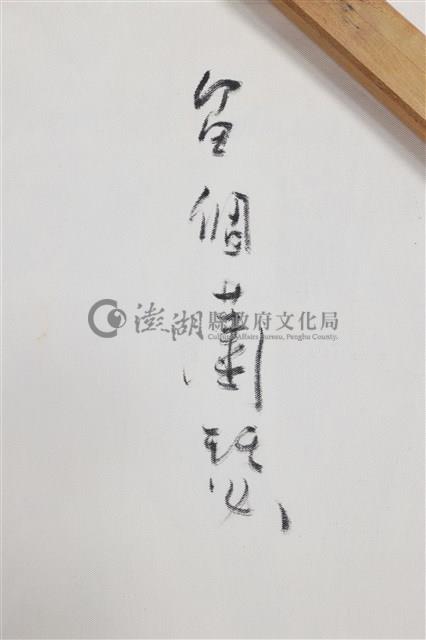 留個蕭瑟
澎湖縣政府文化局
Cultural Affairs Bureau, Penghu County.